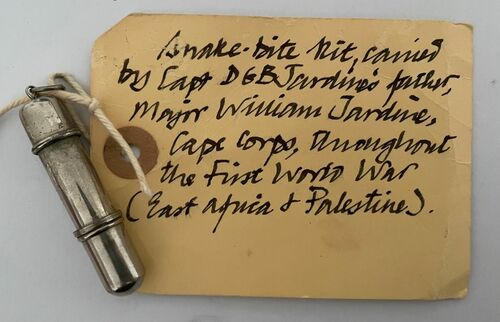 Snake-bite kit, carried
by Capt DGB Jardine's father,
Major William Jardine,
Cape Corps, throughout
the First World War
(East Africa & Palestine).